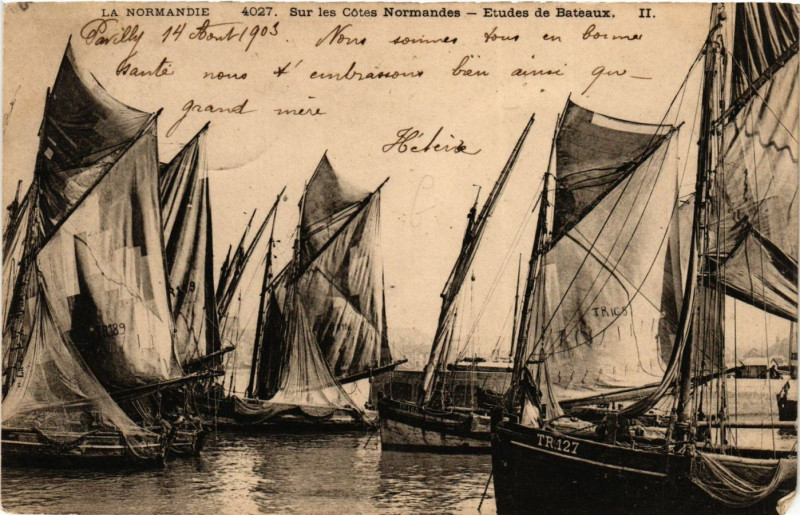 LA NORMANDIE 4027. Sur les Côtes Normandes — Etudes de Bateaux. II.
Pavilly 14 Aout 1903. Nous sommes tous en bonne
santé nous t'embrassons bien ainsi que
grand mère
TR189
TR165
TR127